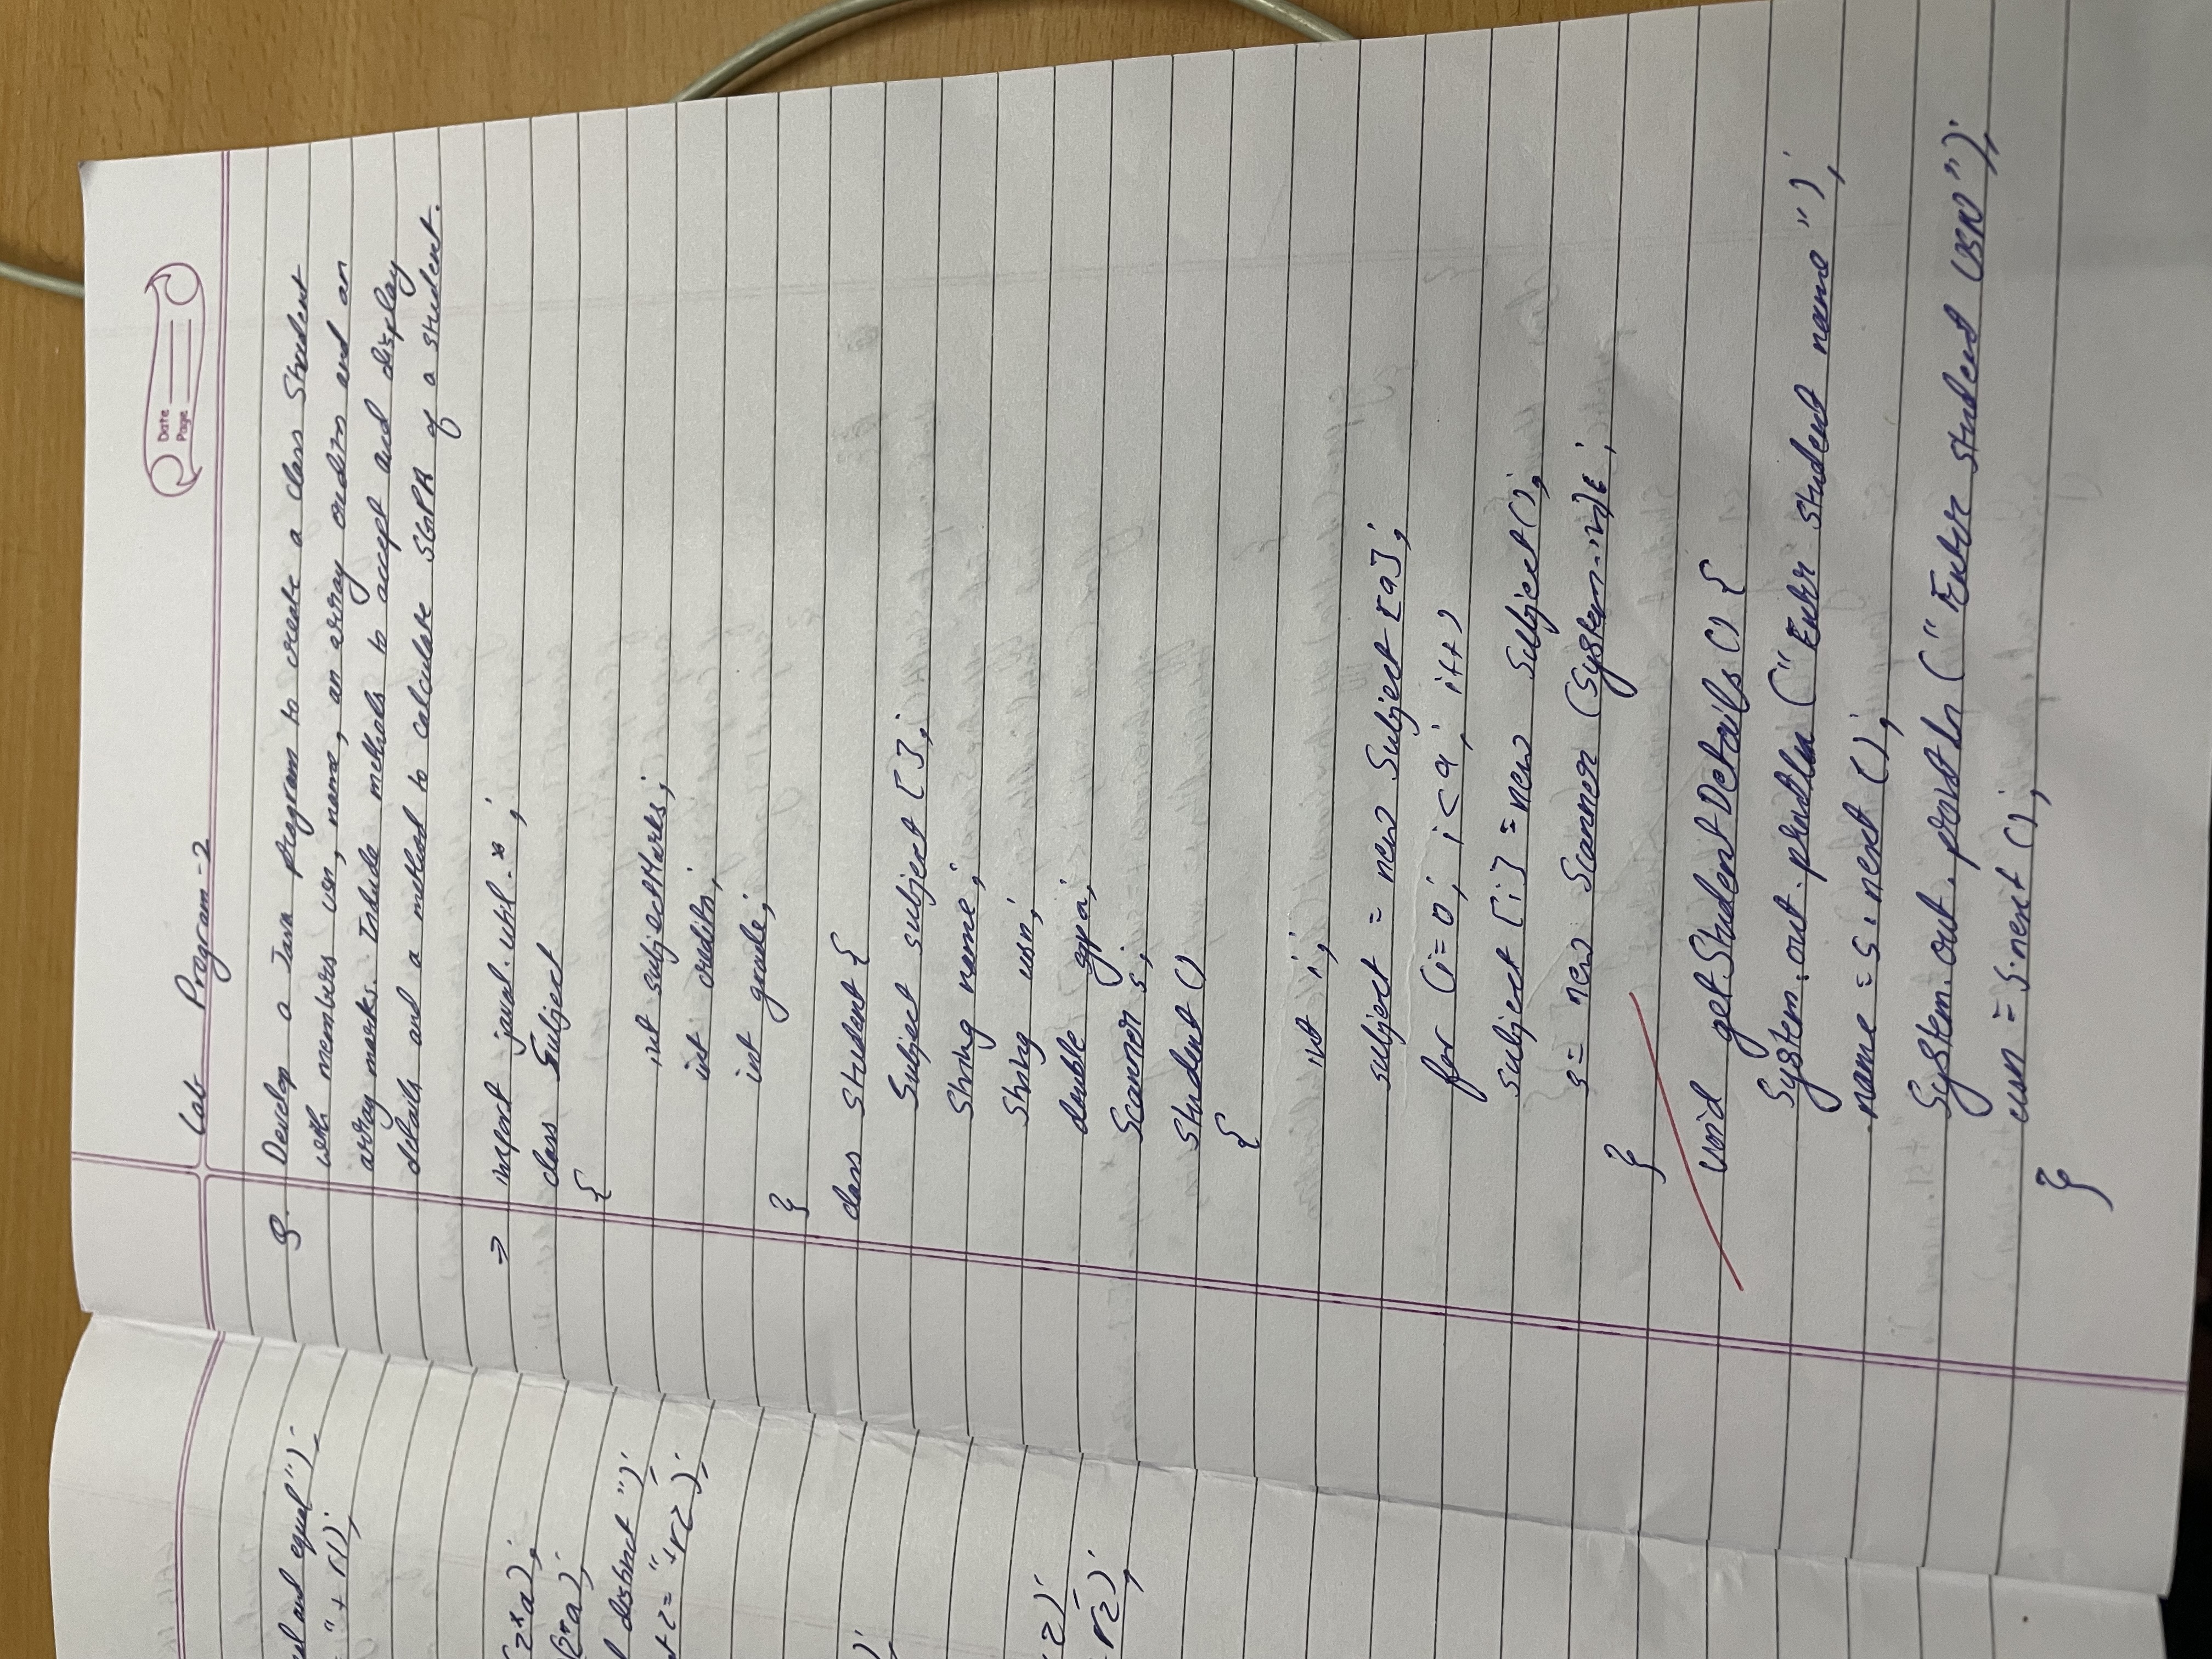 al and equal");
"+r1);
(2*a);
(2*a);
l distinct");
t2= "+r2);
);
2);
r2);
Date
Page
Lab Program-2
Q. Develop a Java program to create a class Student
with members usn, name, an array credits and an
array marks. Include methods to accept and display
details and a method to calculate SGPA of a student.
→ import java.util.*;
class Subject
{
int subjectMarks;
int credits;
int grade;
}
class Student {
Subject subject [];
String name;
String usn;
double sgpa;
Scanner s;
Student ()
{
int i;
subject = new Subject [9];
for (i=0; i<9; i++)
subject [i] = new Subject();
s= new Scanner (System.in);
}
void getStudentDetails () {
System.out.println ("Enter student name");
name = s.next ();
System.out.println ("Enter student USN");
usn = s.next ();
}